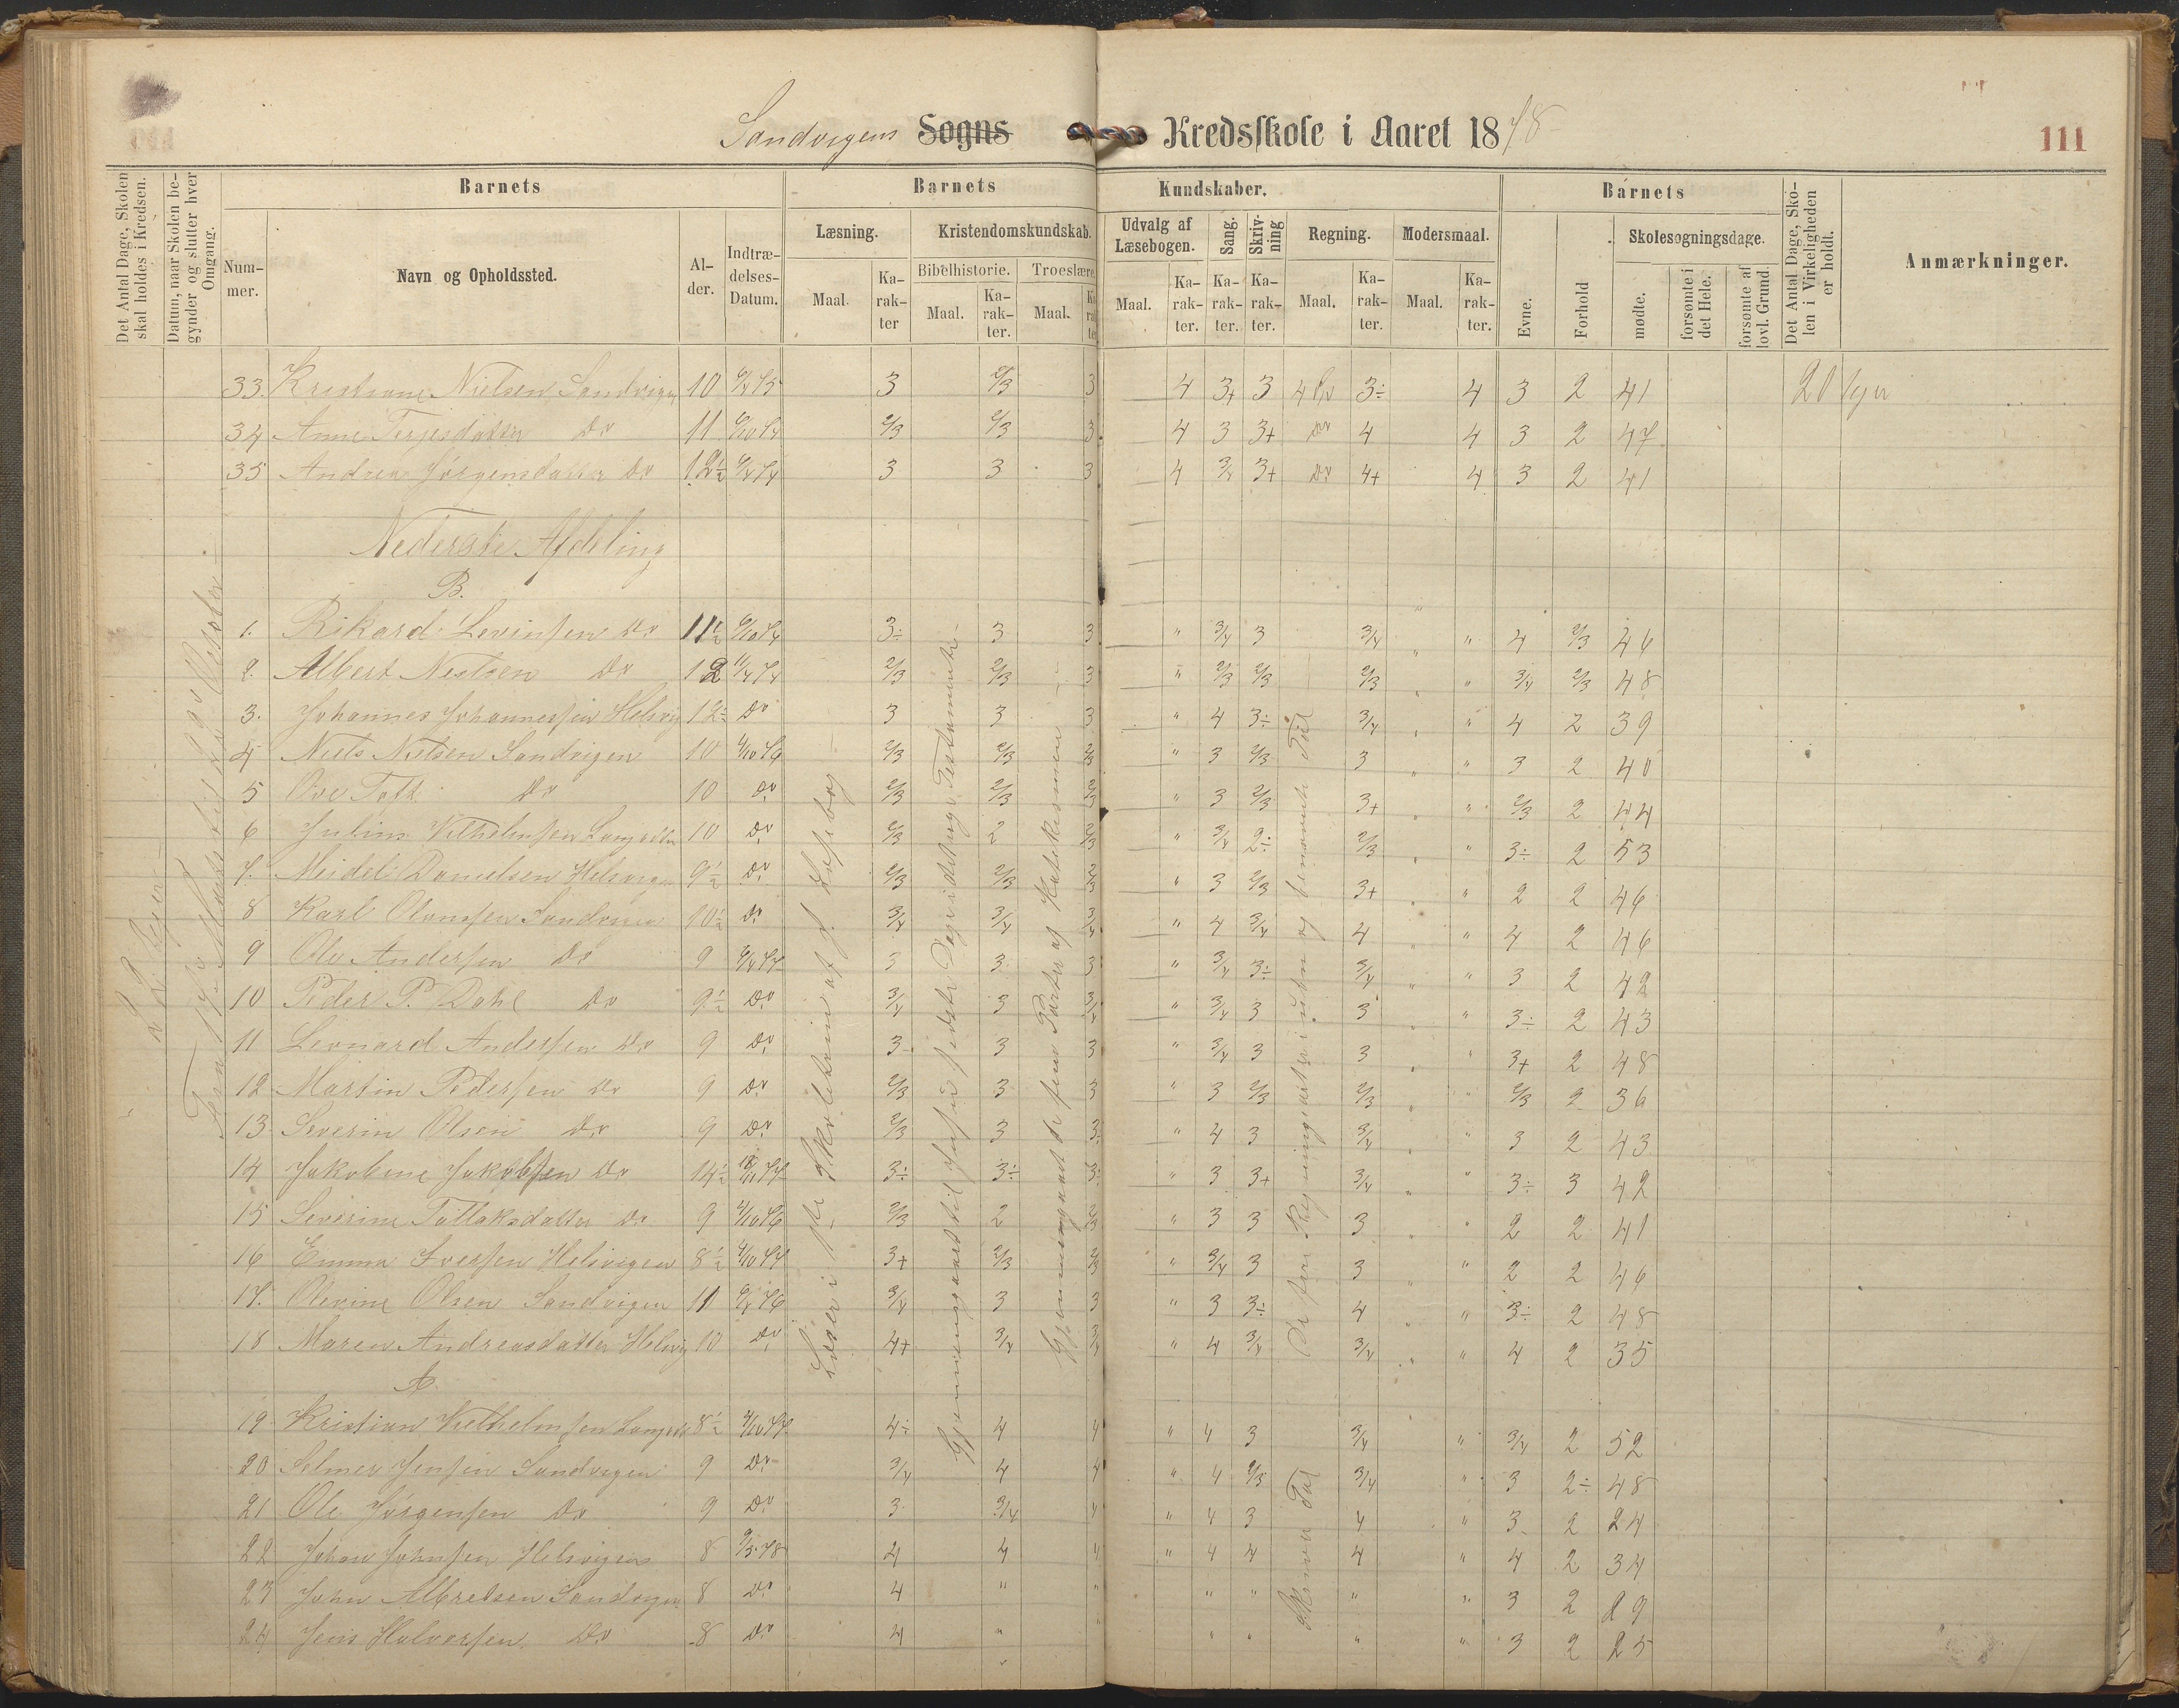 Sandvigens Sogns Kredsskole i Aaret 1878
111
Det Antal Dage, Skolen skal holdes i Kredsen.
Datum, naar Skolen begynder og slutter hver Omgang.
Barnets
Nummer.
Navn og Opholdssted.
Alder.
Indtrædelses-Datum.
Barnets Kundskaber.
Læsning.
Maal.
Karakter
Kristendomskundskab.
Bibelhistorie.
Maal.
Karakter.
Troeslære.
Maal.
Karakter
Udvalg af Læsebogen.
Maal.
Karakter.
Sang.
Karakter.
Skrivning
Karakter.
Regning.
Maal.
Karakter.
Modersmaal.
Maal.
Karakter.
Barnets
Evne.
Forhold
Skolesøgningsdage.
mødte.
forsømte i det Hele.
forsømte af lovl. Grund.
Det Antal Dage, Skolen i Virkeligheden er holdt.
Anmærkninger.
33. Kristiane Nielsen Sandvigen 10 3 2/3 3 4 3+ 3 3÷ 4 3 2 41
34 Anne Terjesdatter Do 11 2/3 2/3 3 4 3 3+ Do 4 4 3 2 47
35 Andrea Jørgensdatter Do 12½ 3 3 3 4 3/4 3+ Do 4+ 4 3 2 41
Nederste Afdeling
B.
1. Rikard Levinsen Do 11½ 3÷ 3 3 " 3/4 3 3/4 " 4 2/3 46
2. Albert Nielsen Do 12 2/3 2/3 3 " 2/3 2/3 2/3 " 3/4 2/3 48
3. Johannes Johannessen Helsvig 12½ Do 3 3 3 " 4 3÷ 3/4 " 4 2 39
4 Niels Nielsen Sandvigen 10 4/10 76 2/3 2/3 2/3 " 3 2/3 3 " 3 2 40
5 Ove Toft Do 10 Do 2/3 2/3 2/3 " 3 2/3 3+ " 2/3 2 44
6 Julius Vilhelmsen 10 Do 2/3 2 2/3 " 3/4 2÷ 2/3 " 3÷ 2 53
7. Meidel Danielsen Helsvigen 9½ Do 2/3 2/3 2/3 " 3 2/3 3+ " 2 2 46
8 Karl Sandvigen 10½ Do 3/4 3/4 3/4 " 4 3/4 4 " 4 2 46
9 Ole Andersen Do 9 3 3 3 " 3/4 3÷ 3/4 " 3 2 42
10 Peder P. Dahl Do 9½ Do 3/4 3 3/4 " 3/4 3 3 " 3÷ 2 43
11 Leonard Andersen Do 9 Do 3 3 3 " 3/4 3 3 " 3+ 2 48
12 Martin Pedersen Do 9 Do 2/3 3 3 " 3 2/3 2/3 " 2/3 2 36
13 Severin Olsen Do 9 Do 2/3 3 3 " 4 3 3/4 " 3 2 43
14 Jakobine Jakobsen Do 14½ 3÷ 3÷ 3 " 3 3+ 3/4 " 3÷ 3 42
15 Severine Tallaksdatter Do 9 4/10 76 2/3 2 2/3 " 3 3 3 " 2 2 41
16 Emma Iversen Helsvigen 8½ 4/10 77 3+ 2/3 2/3 " 3/4 3 3 " 2 2 46
17. Olevine Olsen Sandvigen 11 3/4 3 3 " 3 3÷ 4 " 3÷ 2 48
18 Maren Andreasdatter Helsvig 10 Do 4+ 3/4 3/4 " 4 3/4 3/4 " 4 2 35
A
19 Kristian Vilhelmsen 8½ 4/10 77 4÷ 4 4 " 4 3 3/4 " 3/4 2 52
20 Selmer Jensen Sandvigen 9 Do 3/4 4 4 " 4 2/3 3/4 " 3 2÷ 48
21 Ole Jørgensen Do 9 Do 3 3/4 4 " 4 3 4 " 3 2 24
22 Johan Johnsen Helsvigen 8 4 4 4 " 4 4 4 " 4 2 34
23 John Albretsen Sandvigen 8 Do 4 " " " " " " 3 2 29
24 Jens Halvorsen Do 8 Do 4 " " " " " " 3 2 25
Læser i 1ste Skoletrin af J. Læsebog
Gjennemgaaet de fem Parter af Katekismen
De fire Regningsarter i uben og benævnte Tal
Skriver Tal